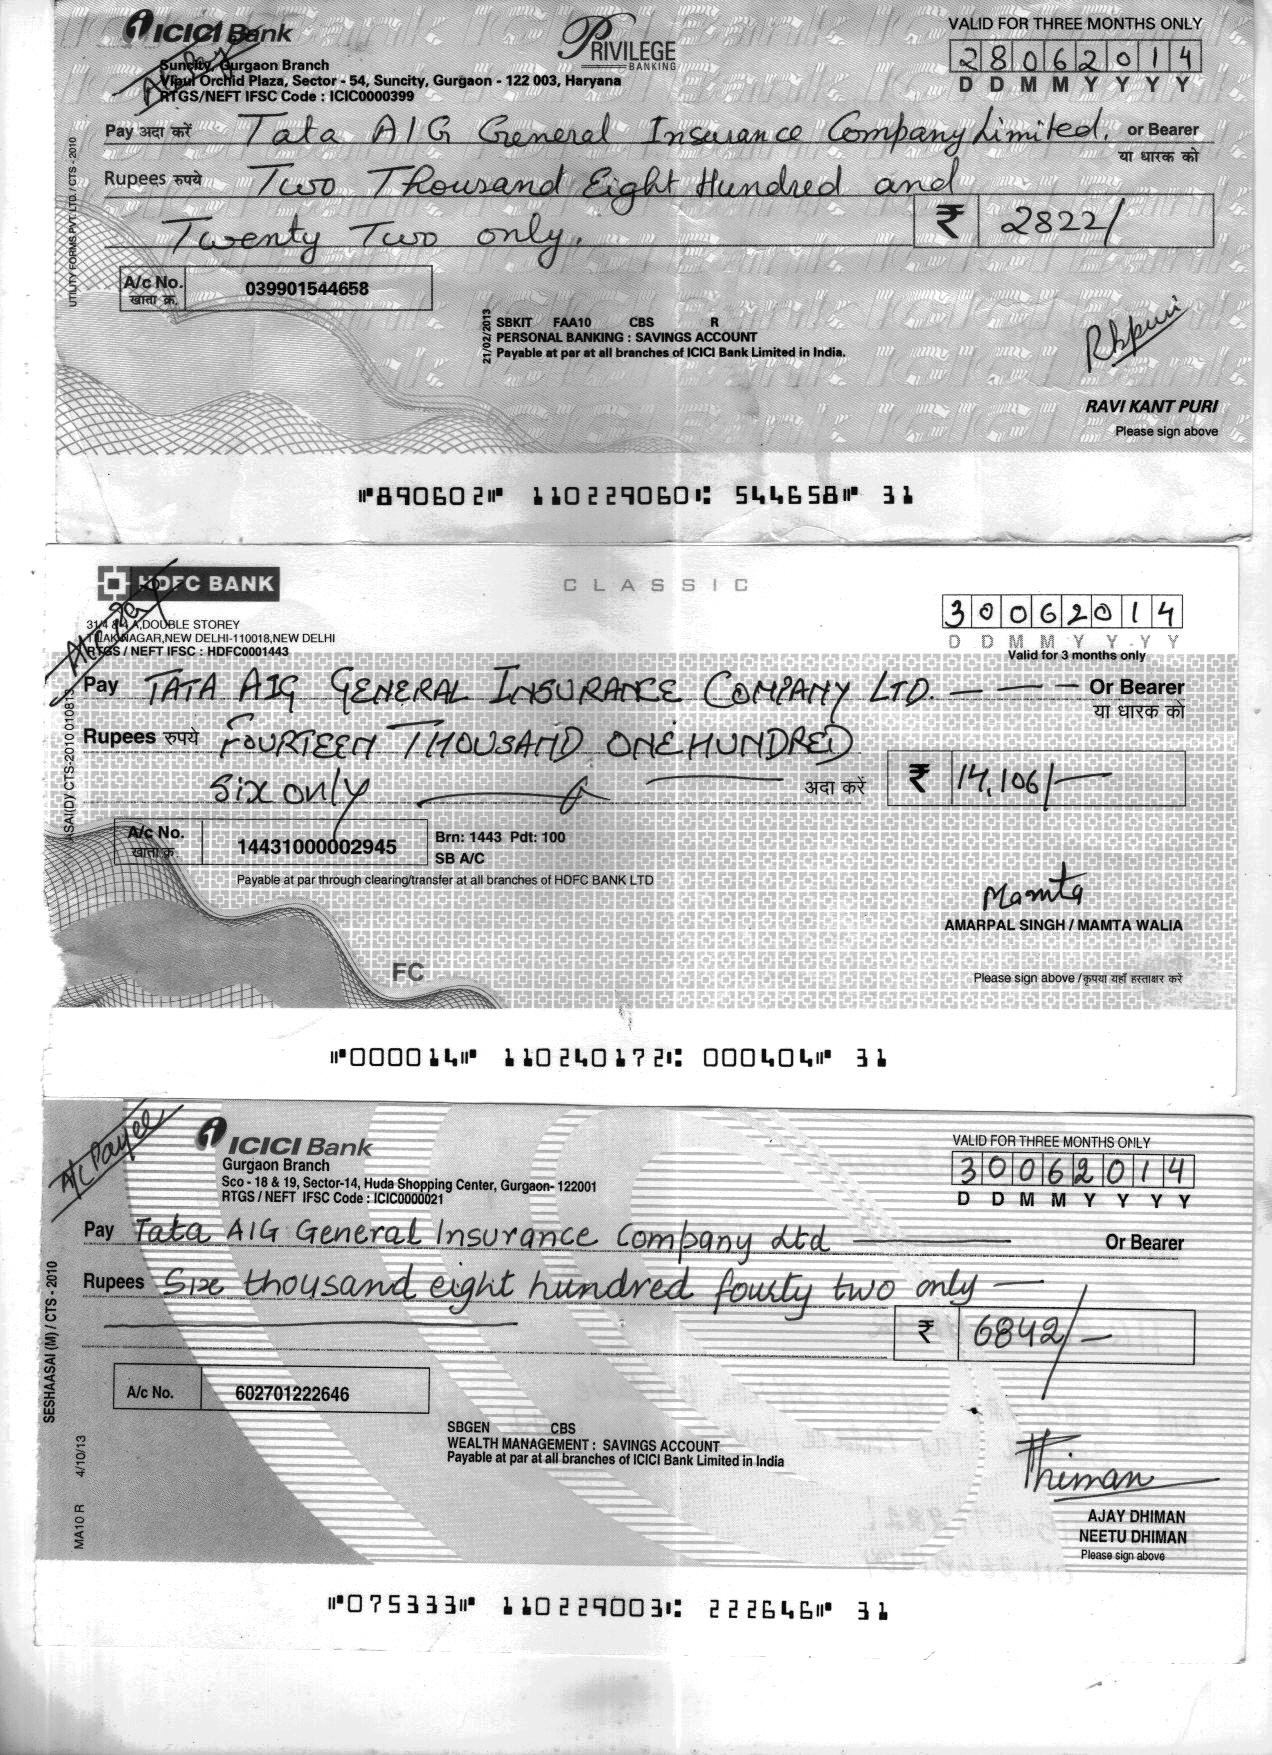 ICICI Bank
PRIVILEGE
BANKING
VALID FOR THREE MONTHS ONLY
28062014
D D M M Y Y Y Y
Suncity, Gurgaon Branch
Vipul Orchid Plaza, Sector - 54, Suncity, Gurgaon - 122 003, Haryana
RTGS/NEFT IFSC Code : ICIC0000399
Pay अदा करें Tata AIG General Insurance Company Limited. or Bearer
या धारक को
Rupees रुपये Two Thousand Eight Hundred and
Twenty Two only. ₹ 2822/
A/c No. 039901544658
खाता क्र.
UTILITY FORMS PVT. LTD. / CTS - 2010
21/02/2013
SBKIT FAA10 CBS R
PERSONAL BANKING : SAVINGS ACCOUNT
Payable at par at all branches of ICICI Bank Limited in India.
Rkpuri
RAVI KANT PURI
Please sign above
⑈890602⑈ 110229060⑆ 544658⑈ 31
HDFC BANK
CLASSIC
30062014
D D M M Y Y Y Y
Valid for 3 months only
DOUBLE STOREY
TILAK NAGAR,NEW DELHI-110018,NEW DELHI
RTGS / NEFT IFSC : HDFC0001443
Pay TATA AIG GENERAL INSURANCE COMPANY LTD. — — — Or Bearer
या धारक को
Rupees रुपये FOURTEEN THOUSAND ONE HUNDRED
SIX ONLY अदा करें ₹ 14,106/—
A/c No. 14431000002945
खाता क्र.
Brn: 1443 Pdt: 100
SB A/C
Payable at par through clearing/transfer at all branches of HDFC BANK LTD
Mamta
AMARPAL SINGH / MAMTA WALIA
FC
Please sign above / कृपया यहाँ हस्ताक्षर करें
⑈000014⑈ 110240172⑆ 000404⑈ 31
A/C Payee
ICICI Bank
Gurgaon Branch
Sco - 18 & 19, Sector-14, Huda Shopping Center, Gurgaon- 122001
RTGS / NEFT IFSC Code : ICIC0000021
VALID FOR THREE MONTHS ONLY
30062014
D D M M Y Y Y Y
Pay Tata AIG General Insurance Company Ltd — Or Bearer
Rupees Six thousand eight hundred fourty two only —
₹ 6842/—
A/c No. 602701222646
SESHAASAI (M) / CTS - 2010
MA10 R 4/10/13
SBGEN CBS
WEALTH MANAGEMENT : SAVINGS ACCOUNT
Payable at par at all branches of ICICI Bank Limited in India
Dhiman
AJAY DHIMAN
NEETU DHIMAN
Please sign above
⑈075333⑈ 110229003⑆ 222646⑈ 31